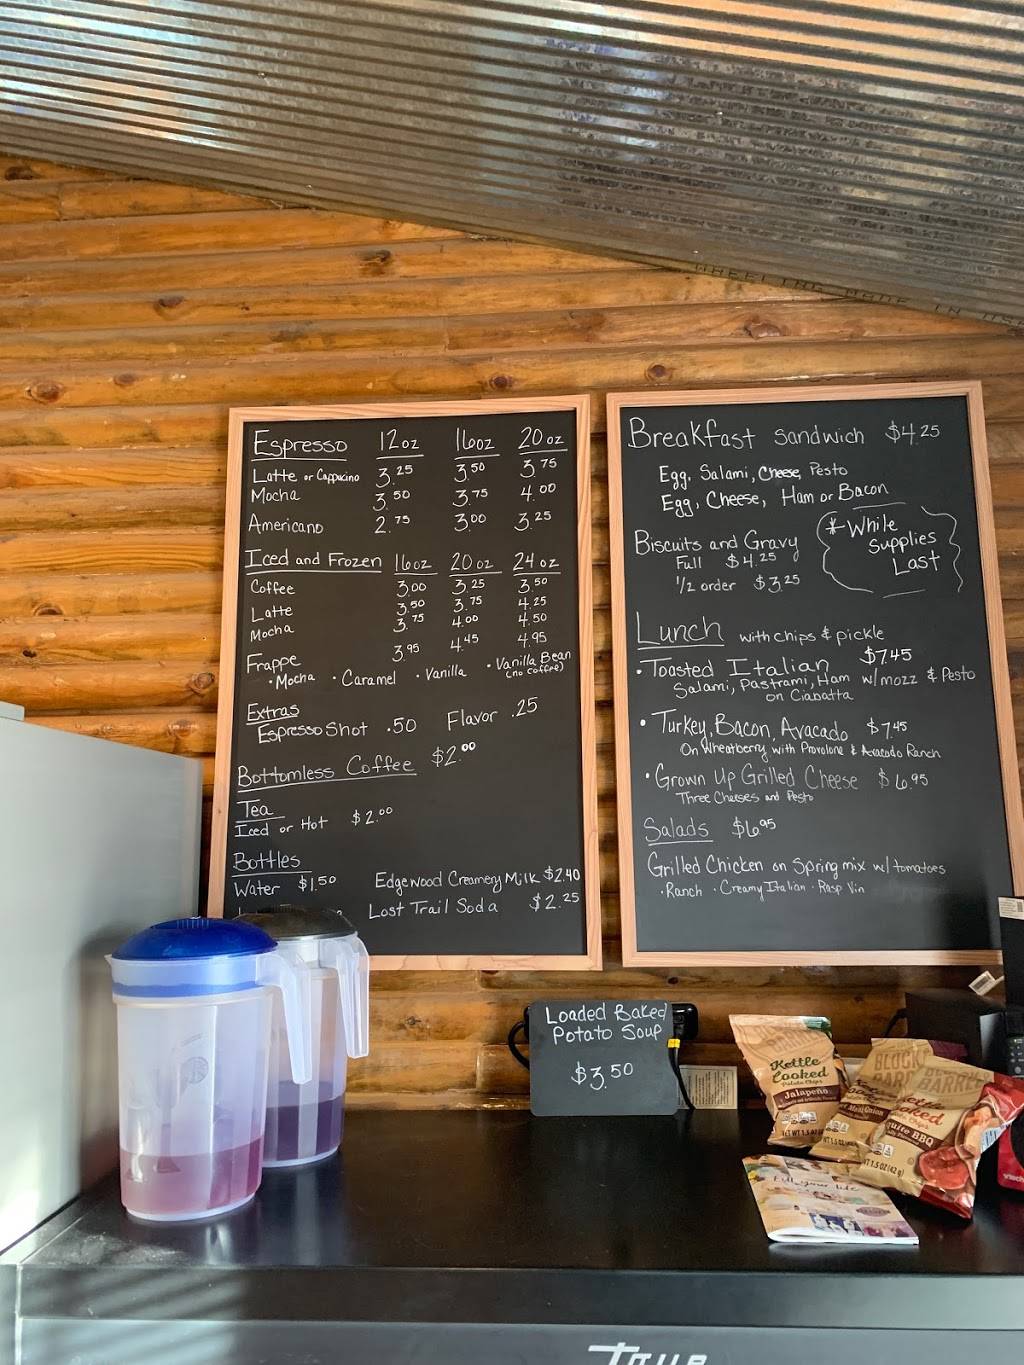 WHEELING MADE IN
Espresso 12oz 16oz 20oz
Latte or Cappucino 3.25 3.50 3.75
Mocha 3.50 3.75 4.00
Americano 2.75 3.00 3.25
Iced and Frozen 16oz 20oz 24oz
Coffee 3.00 3.25 3.50
Latte 3.50 3.75 4.25
Mocha 3.75 4.00 4.50
Frappe 3.95 4.45 4.95
• Mocha • Caramel • Vanilla • Vanilla Bean
(no coffee)
Extras
Espresso Shot .50 Flavor .25
Bottomless Coffee $2.00
Tea
Iced or Hot $2.00
Bottles
Water $1.50 Edgewood Creamery Milk $2.40
Lost Trail Soda $2.25
Breakfast Sandwich $4.25
Egg, Salami, Cheese, Pesto
Egg, Cheese, Ham or Bacon
Biscuits and Gravy
Full $4.25
1/2 order $3.25
* While
Supplies
Last
Lunch with chips & pickle
• Toasted Italian $7.45
Salami, Pastrami, Ham w/mozz & Pesto
on Ciabatta
• Turkey, Bacon, Avacado $7.45
On Wheatberry with Provolone & Avacado Ranch
• Grown Up Grilled Cheese $6.95
Three Cheeses and Pesto
Salads $6.95
Grilled Chicken on Spring mix w/tomatoes
• Ranch • Creamy Italian • Rasp Vin
Loaded Baked
Potato Soup
$3.50
BARREL
Kettle
Cooked
Potato Chips
Jalapeño
NET WT 1.5 OZ
BLOCK
BARREL
Cooked
BBQ
WT 1.5 OZ (42 g)
True